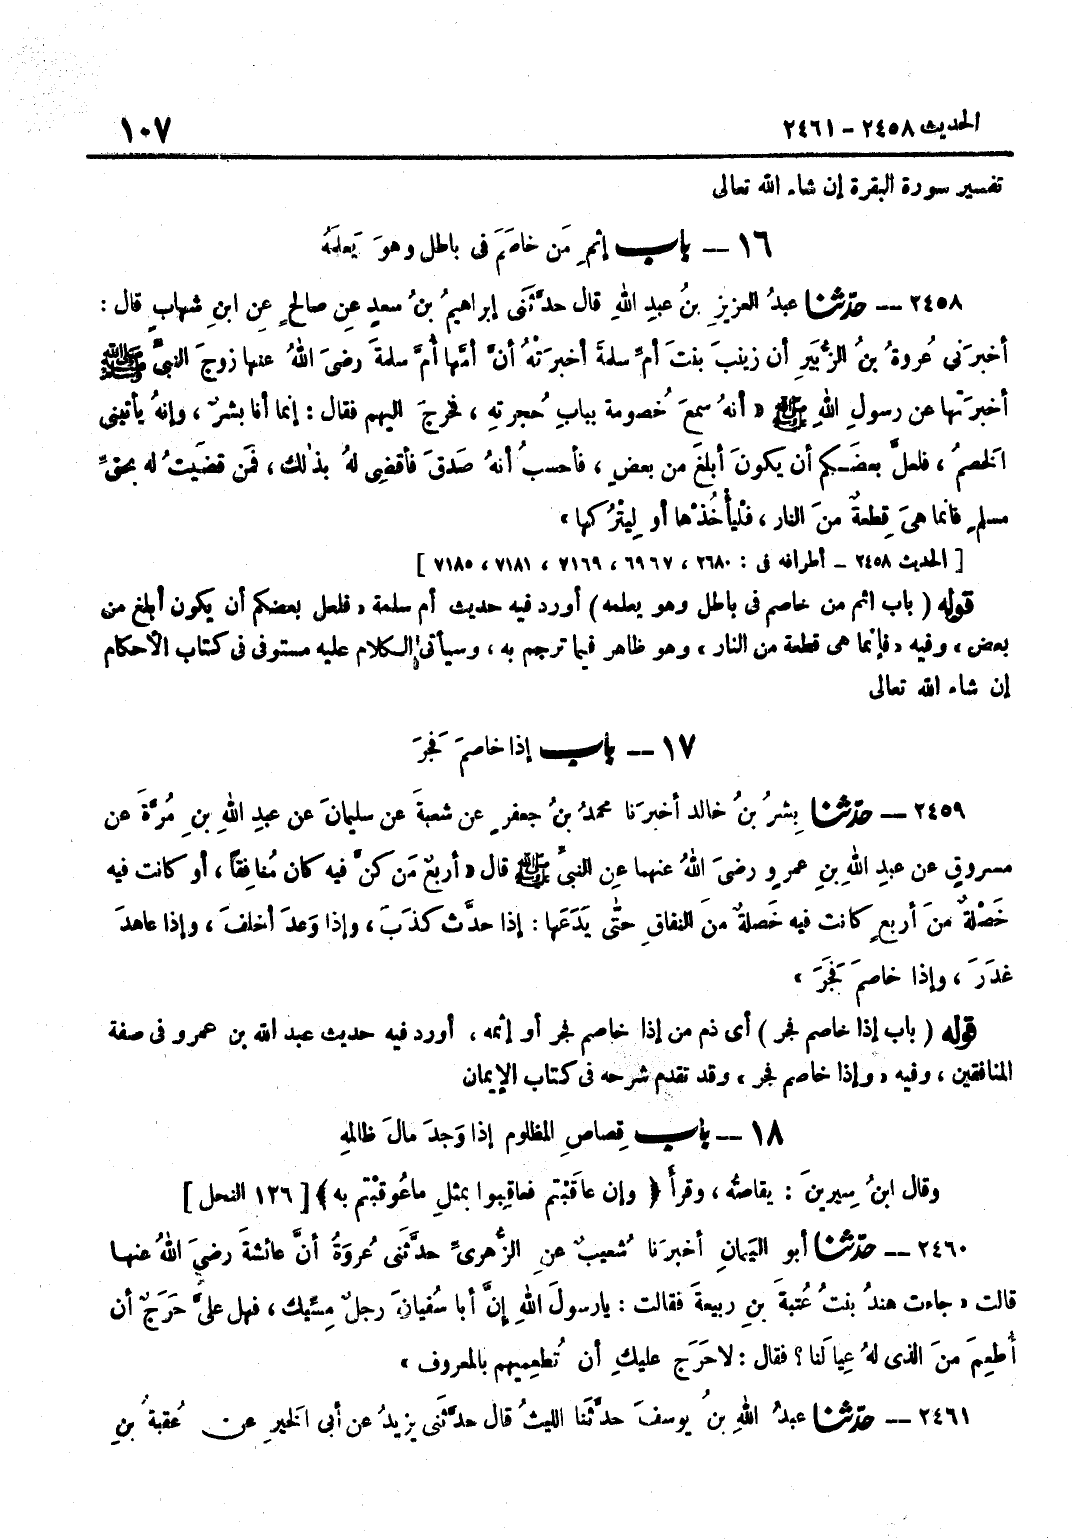 الحديث ٢٤٥٨ - ٢٤٦١
١٠٧
تفسير سورة البقرة إن شاء الله تعالى
١٦ — باب إثمِ مَن خاصَمَ فى باطل وهوَ يَعلمُهُ
٢٤٥٨ — حدّثنا عبدُ العزيزِ بنُ عبدِ اللهِ قال حدَّثَنى إبراهيمُ بنُ سعدٍ عن صالحٍ عنِ ابنِ شهابٍ قال :
أخبرَني عُروةُ بنُ الزُّبَيرِ أن زينبَ بنتَ أمِّ سلمةَ أخبرَتْهُ أنَّ أمَّها أُمَّ سلمةَ رضىَ اللهُ عنها زوجَ النبىِّ ﷺ
أخبرَتها عن رسولِ اللهِ ﷺ « أنهُ سمعَ خُصومة ببابِ حُجرتهِ ، فخرجَ اليهم فقال : إنما أنا بشرٌ ، وإنهُ يأتينى
الخصمُ ، فلعلَّ بعضَكم أن يكونَ أبلغَ من بعضٍ ، فأحسبُ أنهُ صَدقَ فأقضِى لهُ بذلك ، فمَن قضَيتُ له بحقِّ
مسلمٍ فانما هىَ قِطعةٌ منَ النار ، فلْيأْخُذْها أو لِيتْرُكها »
[ الحديث ٢٤٥٨ - أطرافه فى : ٢٦٨٠ ، ٦٩٦٧ ، ٧١٦٩ ، ٧١٨١ ، ٧١٨٥ ]
قوله ( باب اثم من خاصم فى باطل وهو يعلمه ) أورد فيه حديث أم سلمة « فلعل بعضكم أن يكون أبلغ من
بعض ، وفيه « فإنما هى قطعة من النار ، وهو ظاهر فيما ترجم به ، وسيأتى الكلام عليه مستوفى فى كتاب الأحكام
إن شاء الله تعالى
١٧ — باب إذا خاصمَ فَجرَ
٢٤٥٩ — حدّثنا بِشرُ بنُ خالد أخبرَنا محمدُ بنُ جعفرٍ عن شعبةَ عن سليمانَ عن عبدِ اللهِ بنِ مُرَّةَ عن
مسروقٍ عن عبدِ اللهِ بنِ عمرٍو رضىَ اللهُ عنهما عنِ النبىِّ ﷺ قال « أربعٌ مَن كنَّ فيه كان مُنافِقاً ، أو كانت فيه
خَصْلةٌ منَ أربعٍ كانت فيه خَصلةٌ منَ النفاقِ حتَّى يَدَعَها : إذا حدَّث كذَبَ ، وإذا وَعدَ أخلفَ ، وإذا عاهدَ
غدَرَ ، وإذا خاصمَ فَجَرَ »
قوله ( باب إذا خاصم فجر ) أى ذم من إذا خاصم فجر أو إثمه ، أورد فيه حديث عبد الله بن عمرو فى صفة
المنافقين ، وفيه « وإذا خاصم فجر ، وقد تقدم شرحه فى كتاب الإيمان
١٨ — باب قِصاصِ المظلوم إذا وَجدَ مالَ ظالمهِ
وقال ابنُ سِيرينَ : يقاصُّه ، وقرأ ﴿ وإن عاقَبْتم فعاقِبوا بمثلِ ماعُوقبْتم به ﴾ [ ١٢٦ النحل ]
٢٤٦٠ — حدّثنا أبو اليَمانِ أخبرَنا شُعيبٌ عنِ الزُّهرىِّ حدَّثَنى عُروَةُ أنَّ عائشةَ رضيَ اللهُ عنها
قالت « جاءت هندُ بنتُ عُتبةَ بنِ ربيعةَ فقالت : يارسولَ اللهِ إنَّ أبا سُفيانَ رجلٌ مِسِّيك ، فهل علىَّ حَرَجٌ أن
أُطعِمَ منَ الذى لهُ عِيالَنا ؟ فقال : لاحَرَج عليكِ أن تُطعِميهم بالمعروف »
٢٤٦١ — حدّثنا عبدُ اللهِ بنُ يوسفَ حدَّثَنا الليثُ قال حدَّثَنى يزيدُ عن أبى الخيرِ عن عُقبةُ بنِ